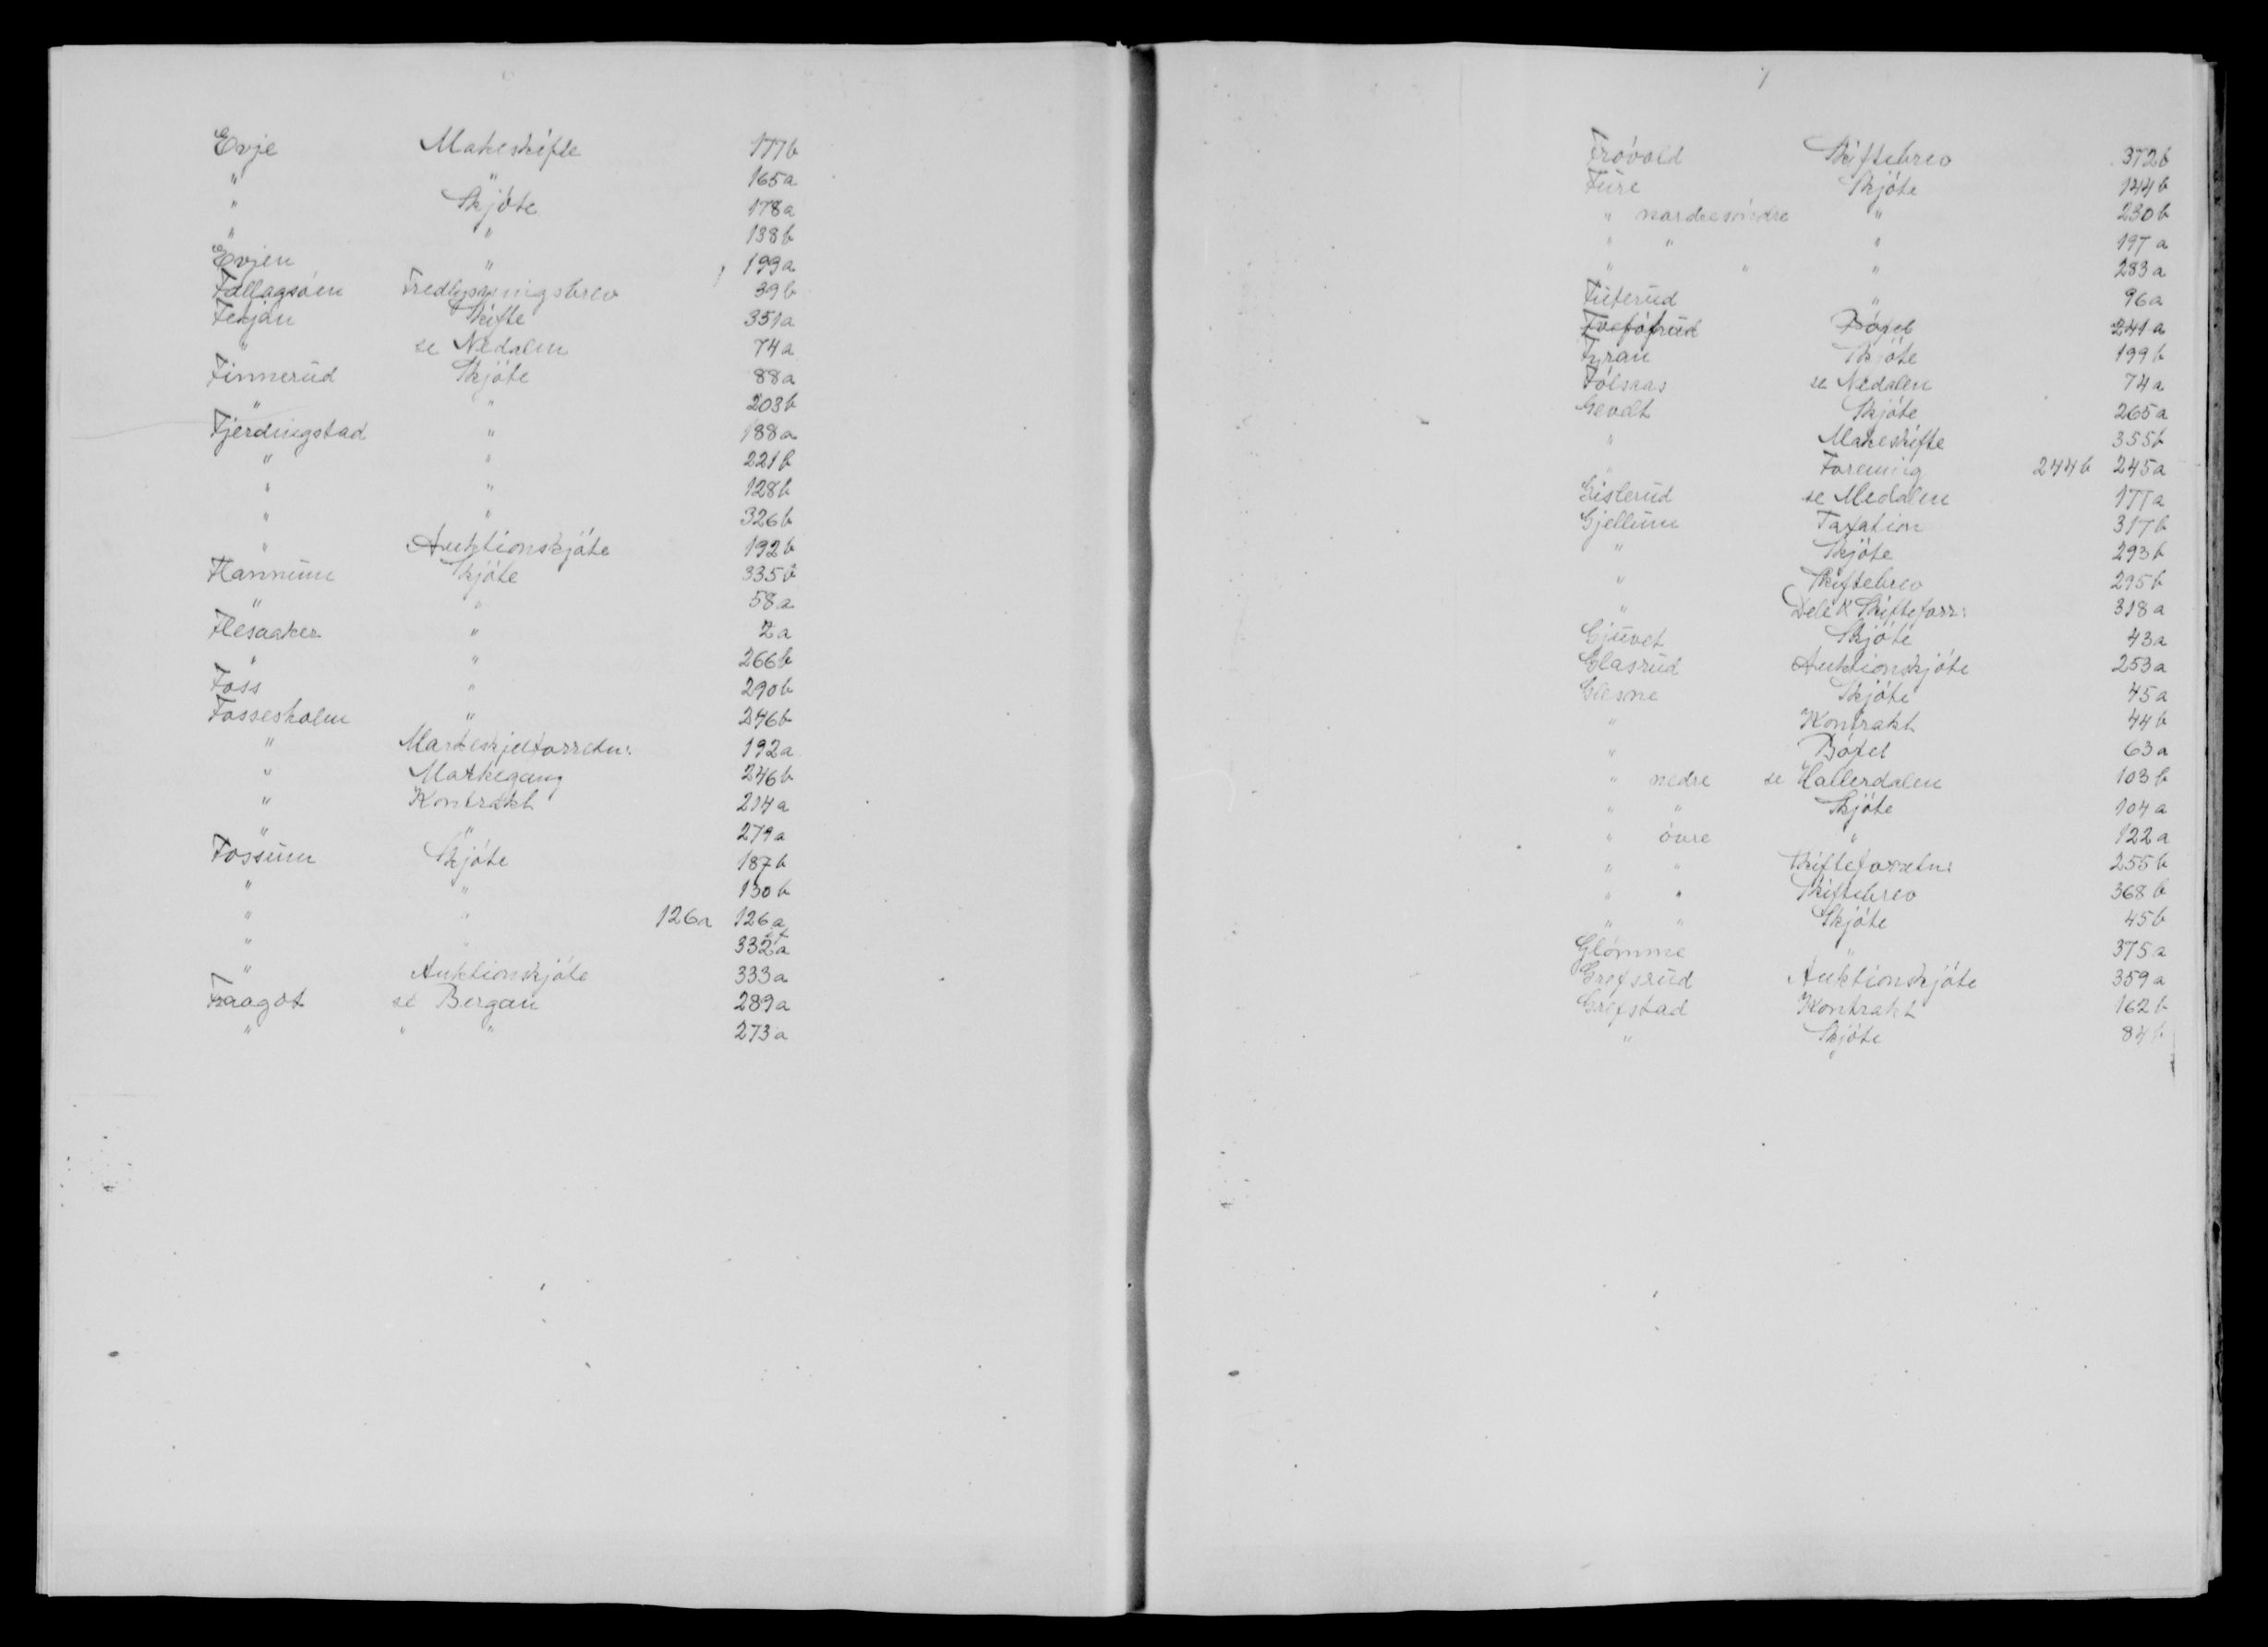 Evje Makeskifte 177b
" " 165a
" Skjöte 178a
" " 138b
Evjen " 199a
Fallagsöen Fredlysningsbrev 39b
Fekjan Skifte 351a
" se Nedalen 74a
Finnerud Skjöte 88a
" " 203b
Fjerdingstad " 188a
" " 221b
" " 128b
" " 326b
" Auktionskjöte 192b
Flannum Skjöte 335b
" " 58a
Flesaaker " 2a
" " 266b
Foss " 290b
Fossesholm " 246b
" Markeskjelforretn: 192a
" Markegang 246b
" Kontrakt 214a
" " 279a
Fossum Skjöte 187b
" " 130b
" " 126a 126a
" " 332a
" Auktionskjöte 333a
Fraagot se Bergan 289a
" " " 273a
Frövold Skiftebrev 372b
Fure Skjöte 144b
" nordre söndre " 230b
" " " 197a
" " " 283a
Futerud " 96a
Böxel 241a
Fyran Skjöte 199b
Fölsaas se Nedalen 74a
Gevelt Skjöte 265a
" Makeskifte 355b
" Forening 244b 245a
Gisterud se Medalen 177a
Gjellum Taxation 317b
" Skjöte 293b
" Skiftebrev 295b
" Dele K Skifteforr: 318a
Gjuvet Skjöte 43a
Glasrud Auktionskjöte 253a
Glesne Skjöte 45a
" Kontrakt 44b
" Böxel 63a
" nedre se Hallerdalen 103b
" " Skjöte 104a
" övre " 122a
" " Skifteforretn: 255b
" " Skiftebrev 368b
" " Skjöte 45b
Glömme " 375a
Grefsrud Auktionskjöte 359a
Grefstad Kontrakt 162b
" Skjöte 84b